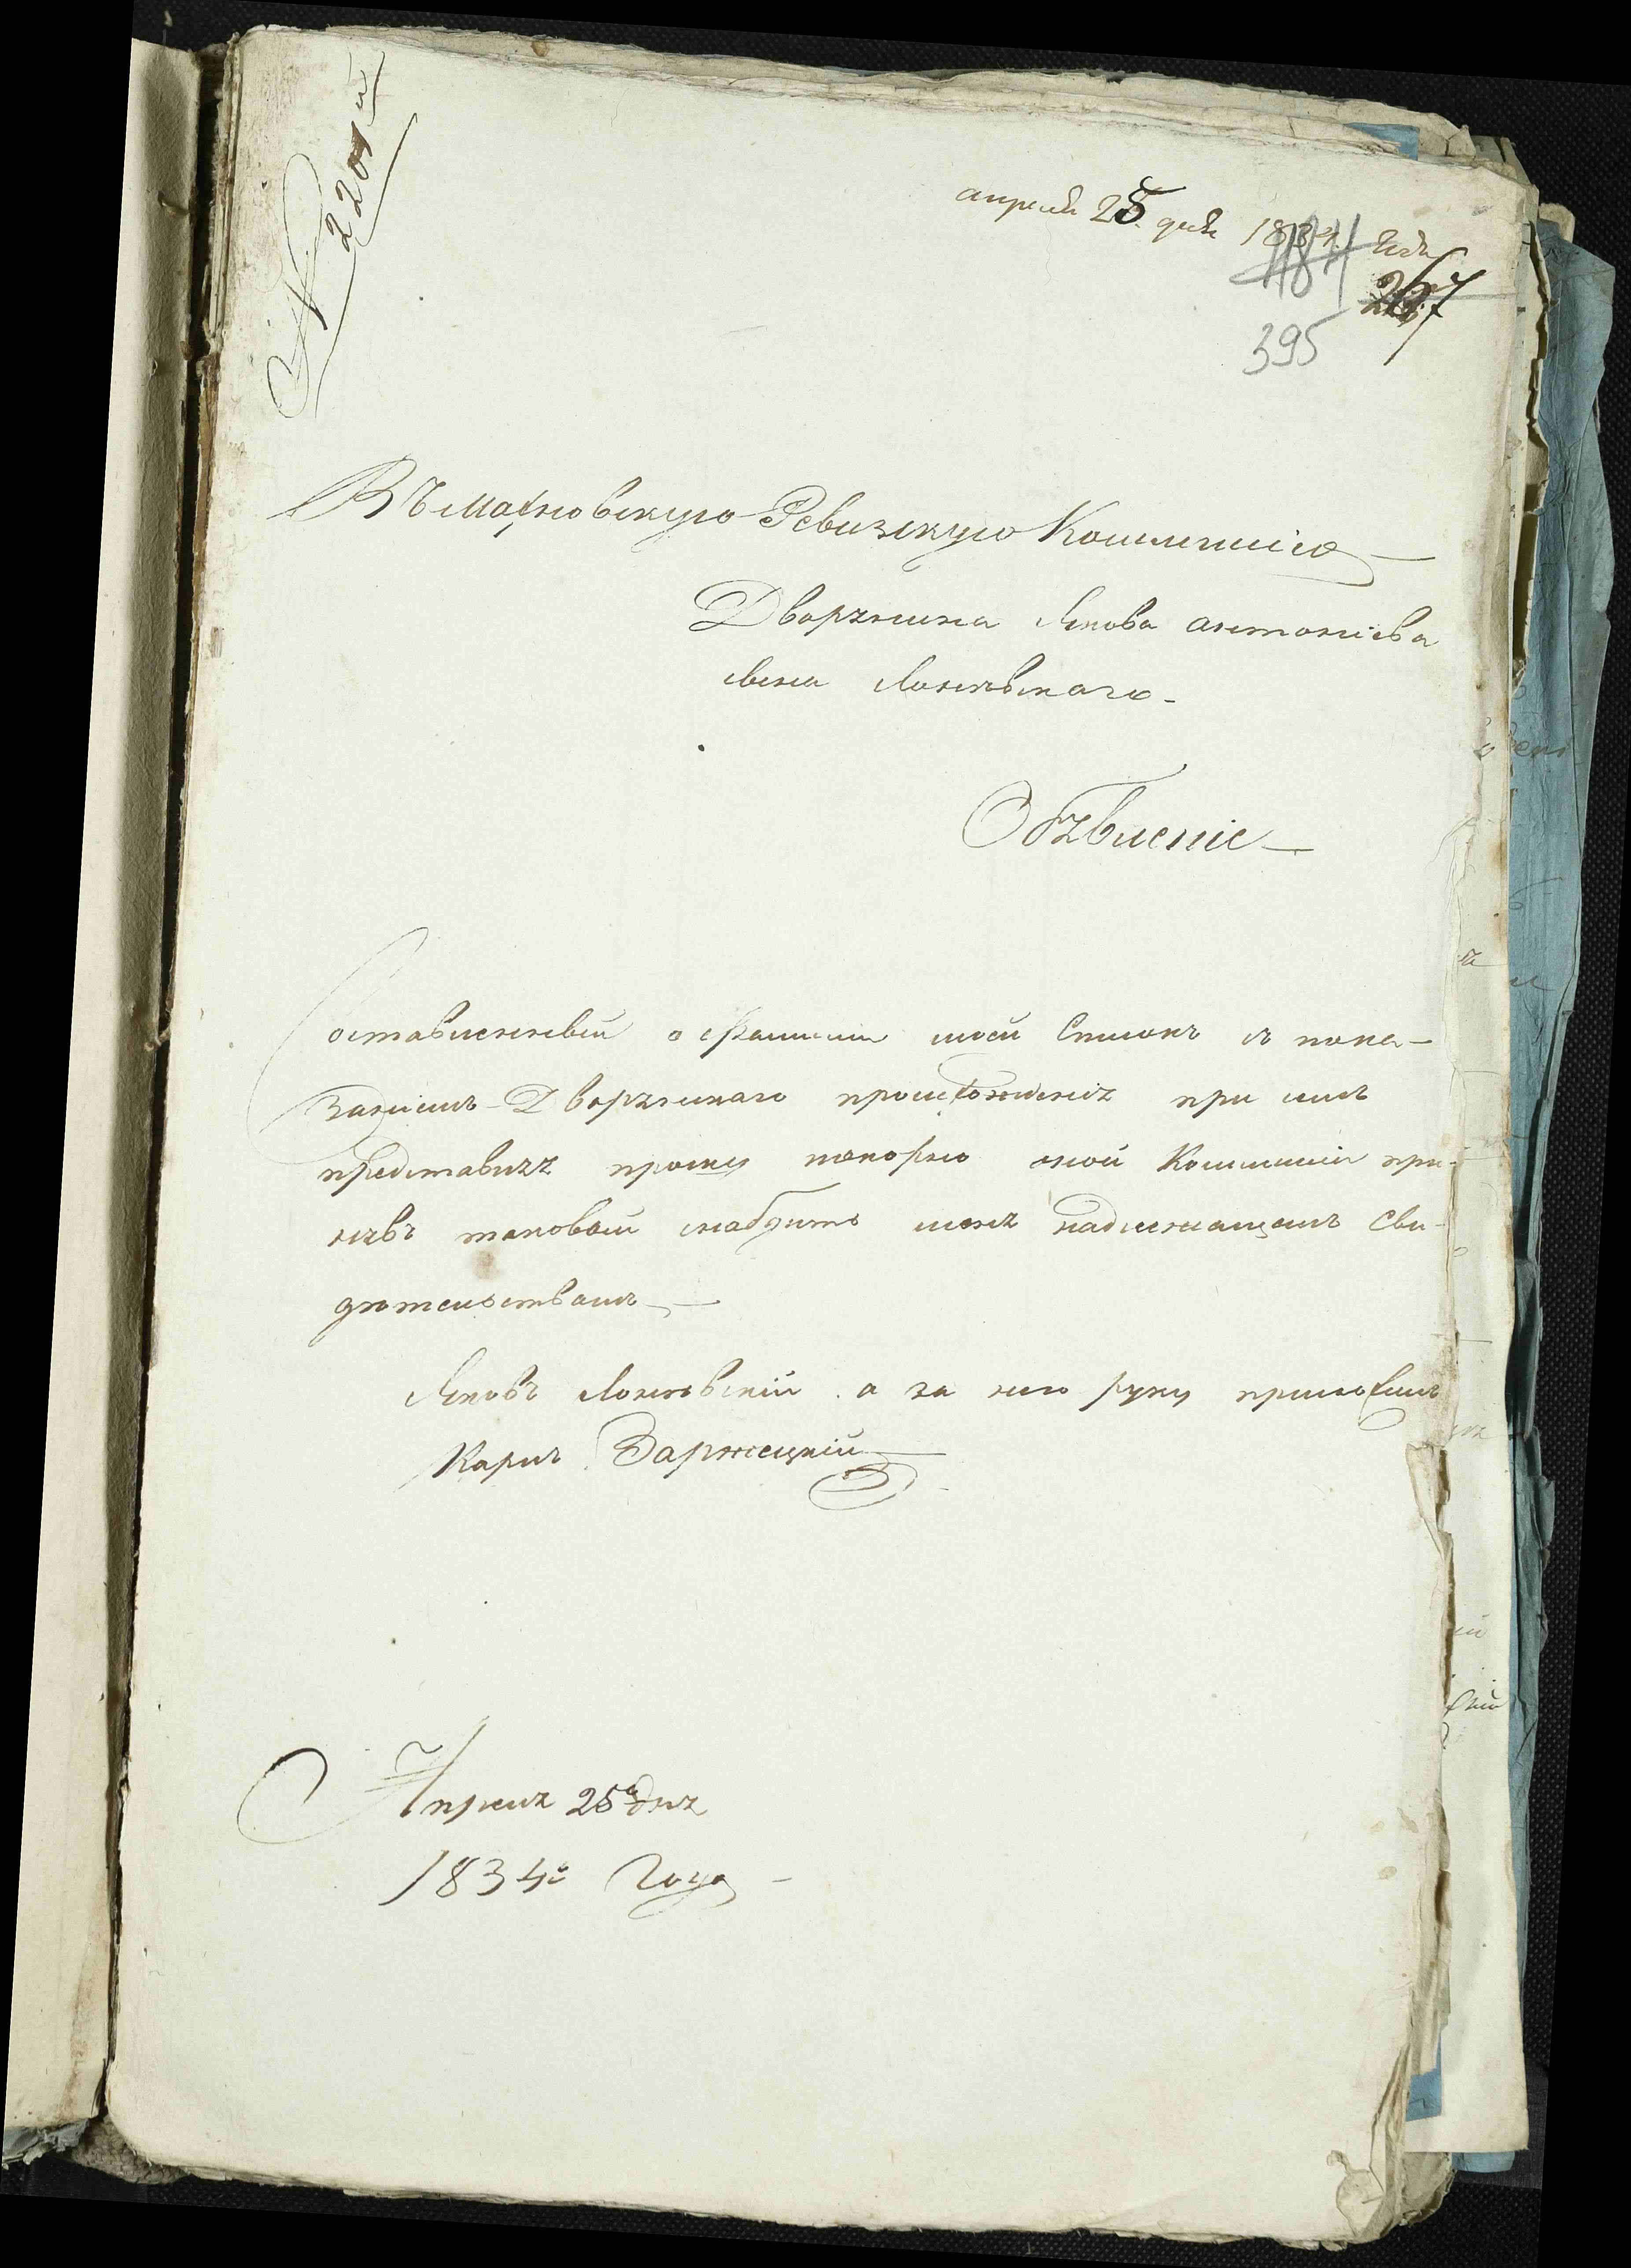 № 220й
апреля 25 дня 1834 года
1184
267
395
Въ Махновскую Ревизскую Коммисію
Дворянина Якова Антоніева
сына Лонтвскаго
Объявленіе
Составленный о фамиліи моей Списокъ съ пока-
заніемъ Дворянскаго происхожденія при семъ
представляя прошу покорно оной Коммисіи при-
нявъ таковый снабдить меня надлежащимъ сви-
дѣтельствамъ
Яковъ а за него руку приложилъ
Карлъ Заржецкій
Апреля 25го дня
1834го Года